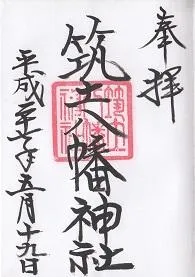 奉拝
筑土八幡神社
平成二十年五月十九日